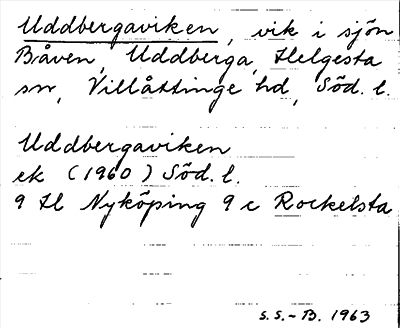 Uddbergaviken, vik i sjön
Båven, Uddberga, Helgesta
sn, Villåttinge hd, Söd. l.
Uddbergaviken
ek (1960) Söd. l.
9 H Nyköping 9 c Rockelsta
S.S.-B. 1963